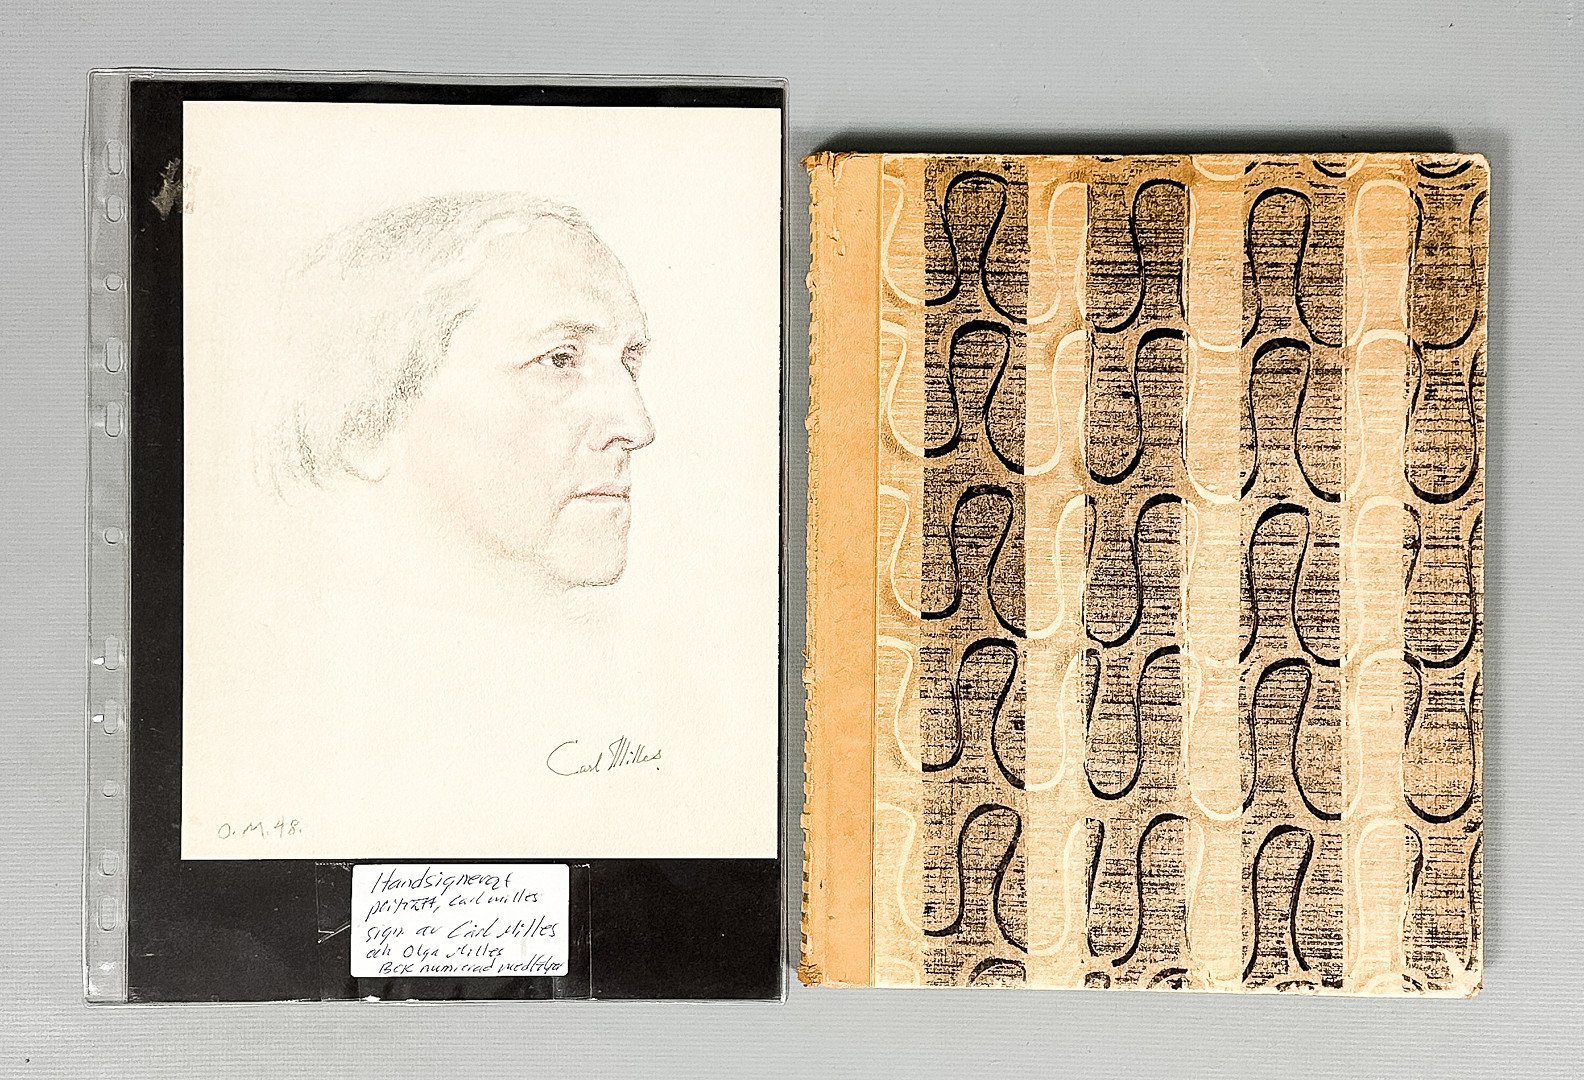 Carl Milles.
O. M. 48.
Handsignerat
porträtt, Carl Milles
sign av Carl Milles
och Olga Milles
Bok numrerad medföljer